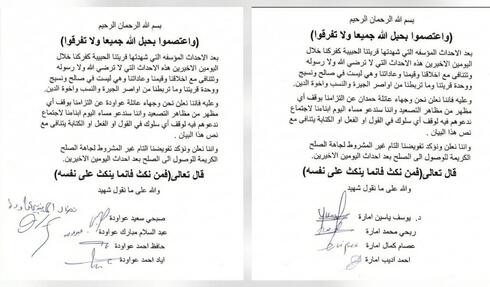 بسم الله الرحمان الرحيم
(واعتصموا بحبل الله جميعا ولا تفرقوا)
بعد الاحداث المؤسفه التي شهدتها قريتنا الحبيبة كفركنا خلال
اليومين الاخيرين هذه الاحداث التي لا ترضي الله ولا رسوله
وتتنافى مع اخلاقنا وقيمنا وعاداتنا وهي ليست في صالح ونسيج
ووحدة قريتنا وما تربطنا من اواصر الجيرة والنسب واخوة الدين.
وعليه فاننا نعلن نحن وجهاء عائلة حمدان عن التزامنا بوقف أي
مظهر من مظاهر التصعيد واننا سندعو مساء اليوم ابناءنا لاجتماع
ندعوهم فيه لوقف أي سلوك في القول او الفعل او الكتابة يتنافى مع
نص هذا البيان .
واننا نعلن ونؤكد تفويضنا التام غير المشروط لجاهة الصلح
الكريمة للوصول الى الصلح بعد احداث اليومين الاخيرين.
قال تعالى(فمن نكث فانما ينكث على نفسه)
والله على ما نقول شهيد
د. يوسف ياسين امارة
ربحي محمد امارة
عصام كمال امارة
احمد اديب امارة
بسم الله الرحمان الرحيم
(واعتصموا بحبل الله جميعا ولا تفرقوا)
بعد الاحداث المؤسفه التي شهدتها قريتنا الحبيبة كفركنا خلال
اليومين الاخيرين هذه الاحداث التي لا ترضي الله ولا رسوله
وتتنافى مع اخلاقنا وقيمنا وعاداتنا وهي ليست في صالح ونسيج
ووحدة قريتنا وما تربطنا من اواصر الجيرة والنسب واخوة الدين.
وعليه فاننا نعلن نحن وجهاء عائلة عواودة عن التزامنا بوقف أي
مظهر من مظاهر التصعيد واننا سندعو مساء اليوم ابناءنا لاجتماع
ندعوهم فيه لوقف أي سلوك في القول او الفعل او الكتابة يتنافى مع
نص هذا البيان .
واننا نعلن ونؤكد تفويضنا التام غير المشروط لجاهة الصلح
الكريمة للوصول الى الصلح بعد احداث اليومين الاخيرين.
قال تعالى(فمن نكث فانما ينكث على نفسه)
والله على ما نقول شهيد
صبحي سعيد عواودة
عبد السلام مبارك عواودة
حافظ احمد عواودة
اياد احمد عواودة